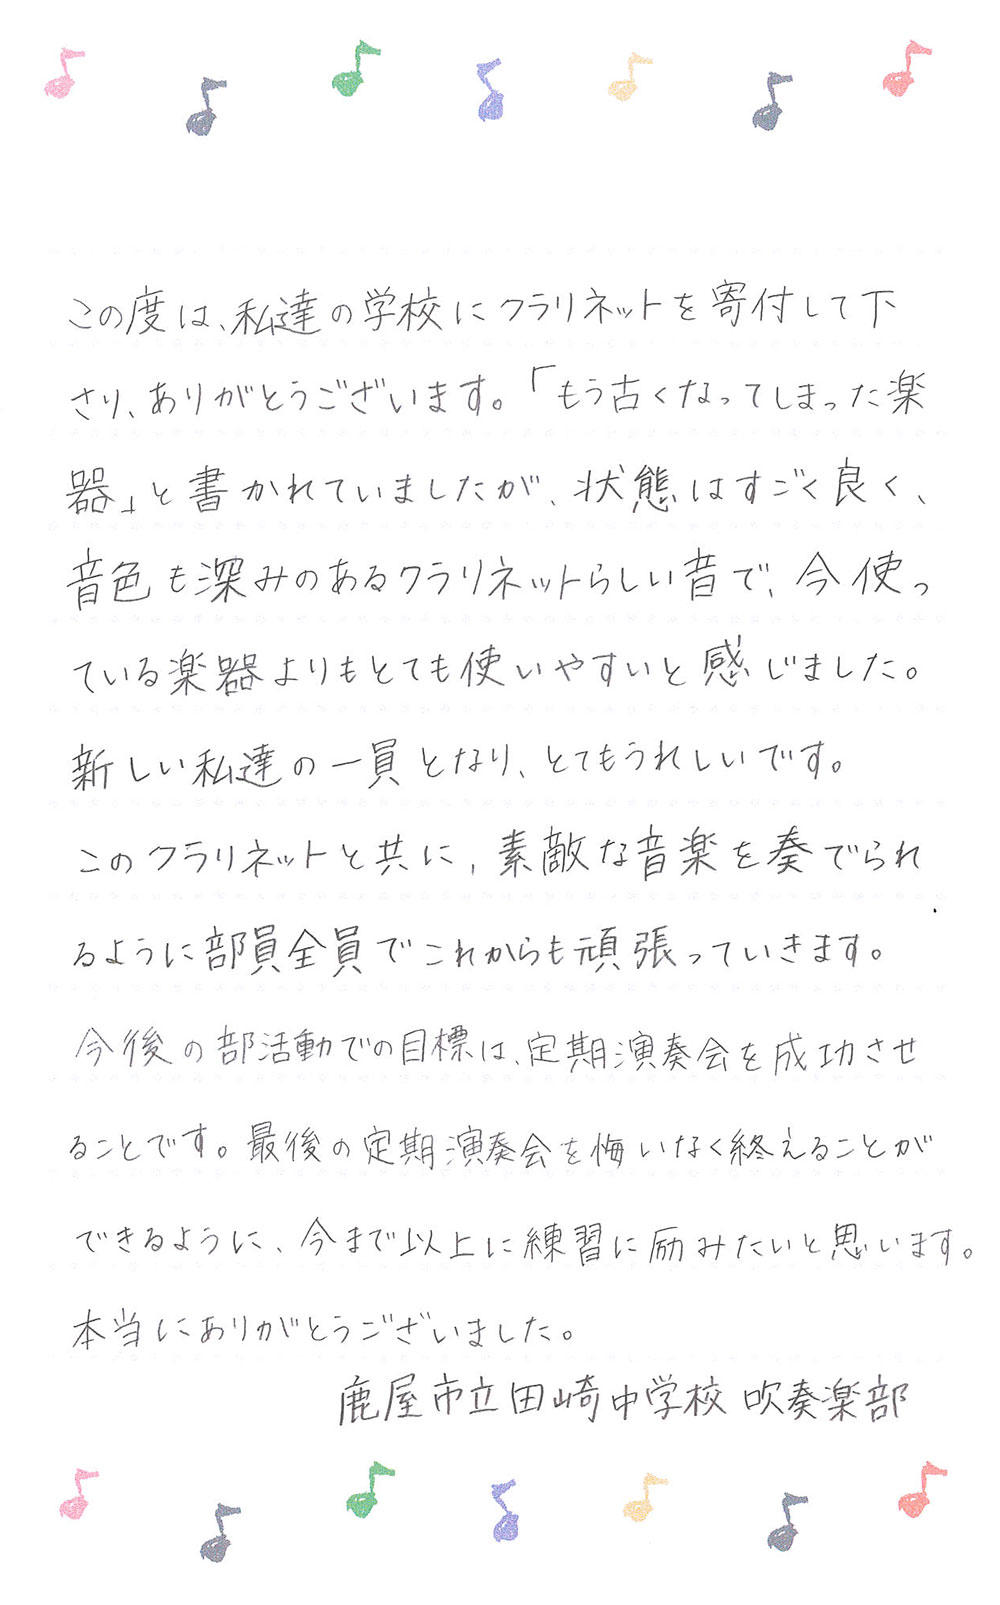 この度は、私達の学校にクラリネットを寄付して下
さり、ありがとうございます。「もう古くなってしまった楽
器」と書かれていましたが、状態はすごく良く、
音色も深みのあるクラリネットらしい音で、今使っ
ている楽器よりもとても使いやすいと感じました。
新しい私達の一員となり、とてもうれしいです。
このクラリネットと共に、素敵な音楽を奏でられ
るように部員全員でこれからも頑張っていきます。
今後の部活動での目標は、定期演奏会を成功させ
ることです。最後の定期演奏会を悔いなく終えることが
できるように、今まで以上に練習に励みたいと思います。
本当にありがとうございました。
鹿屋市立田崎中学校 吹奏楽部